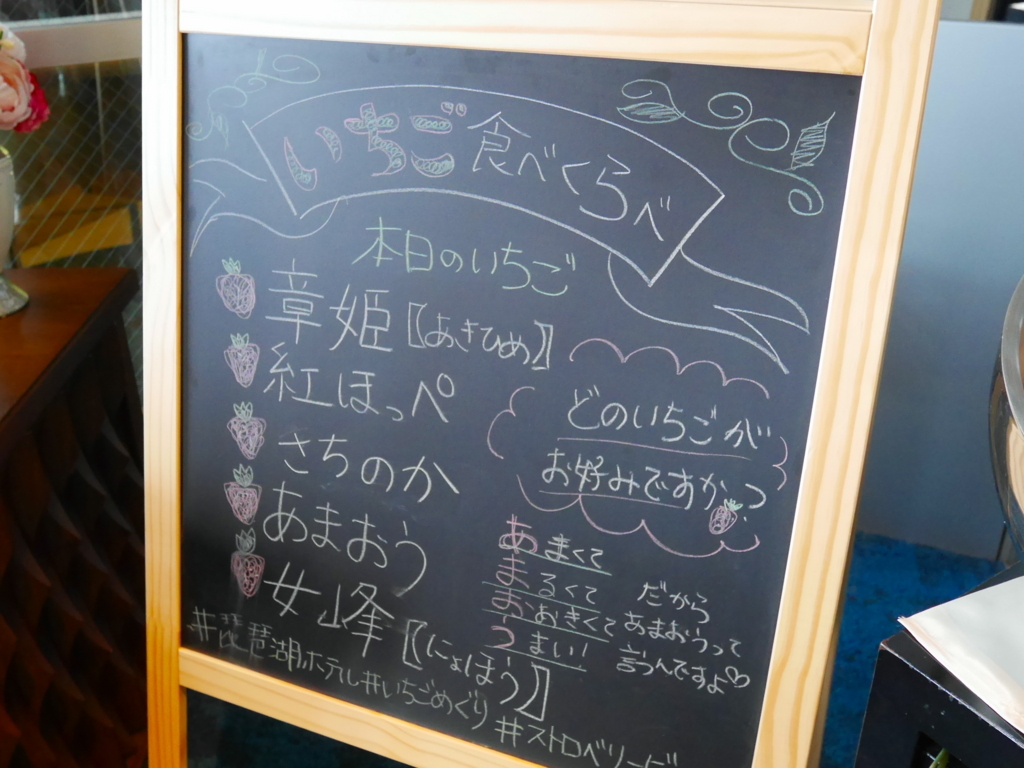 いちご食べくらべ
本日のいちご
章姫【あきひめ】
紅ほっぺ
さちのか
あまおう
女峰【にょほう】
どのいちごが
お好みですか?
あまくて
まるくて
おおきくて
うまい!
だから
あまおうって
言うんですよ♡
#琵琶湖ホテル#いちごめぐり#ストロベリー